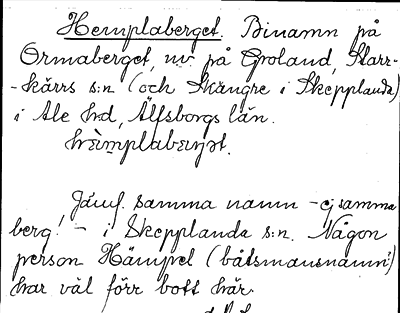 Hemplaberget. Binamn på
Ormaberget, uv. på Groland, Starr-
-kärrs s:n (och Skångre i Skepplanda)
i Ale hd, Älfsborgs län.
Jämf. samma namn - ej samma
berg! - i Skepplanda s:n. Någon
person Hämpel (båtsmansnamn?)
har väl förr bott här.